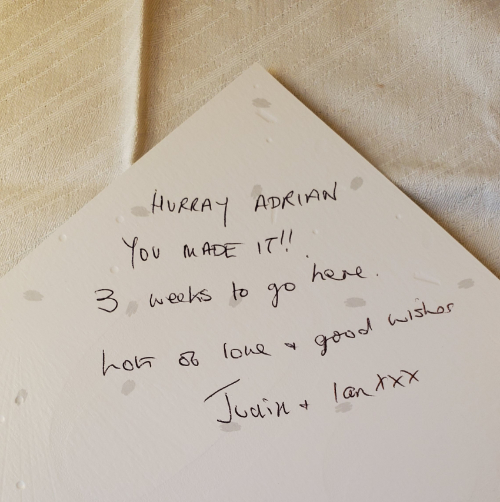 HURRAY ADRIAN
YOU MADE IT!!
3 weeks to go here.
Lots of love + good wishes
+ Ian xxx